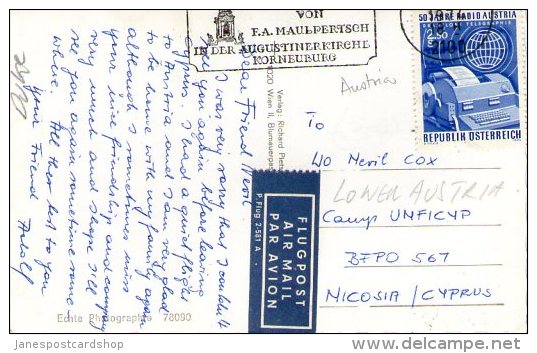 VON
F.A. MAULPERTSCH
IN DER AUGUSTINERKIRCHE
KORNEUBURG
50 JAHRE RADIO AUSTRIA
DRAHTLOSE TELEGRAPHIE
2.50
REPUBLIK ÖSTERREICH
Austria
Dear Friend Meril
I was very sorry that I couldn't
see you again before leaving
Cyprus. I had a quiet flight
to Austria and I am very glad
to be home with my family again
although I sometimes miss
your nice friendship and company
very much and I hope I'll
see you again sometime some-
where. All the best to you
Your Friend Adolf
Verlag: Richard Pietsch
1020 Wien II, Blumauergasse
P. Flug 2-581 A
FLUGPOST
AIR MAIL
PAR AVION
To
WO Meril Cox
LOWER AUSTRIA
Camp UNFICYP
BFPO 567
NICOSIA / CYPRUS
Echte Photographie 78090
Janespostcardshop